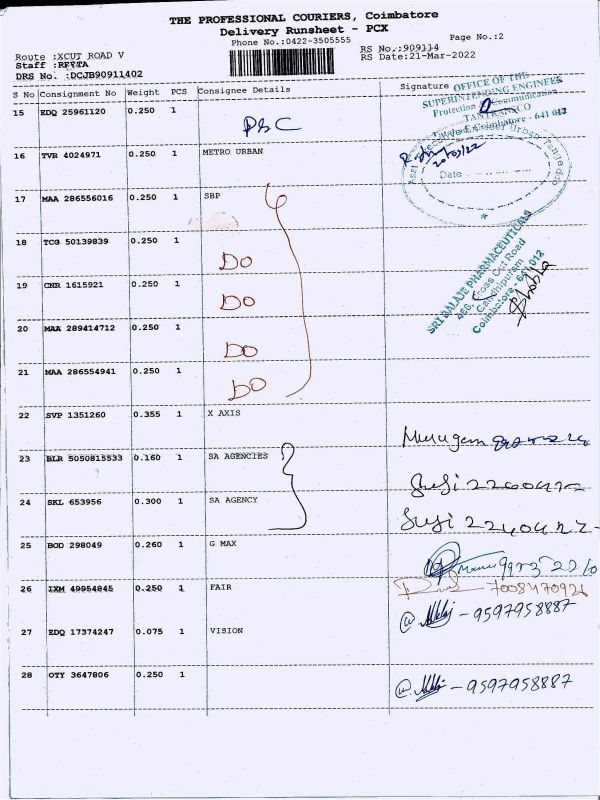 THE PROFESSIONAL COURIERS, Coimbatore
Delivery Runsheet - PCX
Phone No.:0422-3505555
Page No.:2
Route :XCUT ROAD V
RS No.:909114
RS Date:21-Mar-2022
Staff :
DRS No. :DCJB90911402
S No Consignment No Weight PCS Consignee Details Signature
OFFICE OF THE
SUPERINTENDING ENGINEER
Protection & Communication
TANTRANSCO
Coimbatore - 641 012
15 EDQ 25961120 0.250 1
16 TVR 4024971 0.250 1 METRO URBAN
20/03/22
Date
17 MAA 286556016 0.250 1 SBP
18 TCG 50139839 0.250 1 DO
SRI BALAJI PHARMACEUTICALS
466, Cross Cut Road
Gandhipuram
Coimbatore - 641 012
19 CNR 1615921 0.250 1 DO
20 MAA 289414712 0.250 1 DO
21 MAA 286554941 0.250 1 DO
22 SVP 1351260 0.355 1 X AXIS Murugan
23 BLR 5050815533 0.160 1 SA AGENCIES
24 SKL 653956 0.300 1 SA AGENCY
25 BOD 298049 0.260 1 G MAX
26 IXM 49954845 0.250 1 FAIR
27 EDQ 17374247 0.075 1 VISION - 9597958887
28 OTY 3647806 0.250 1 - 9597958887